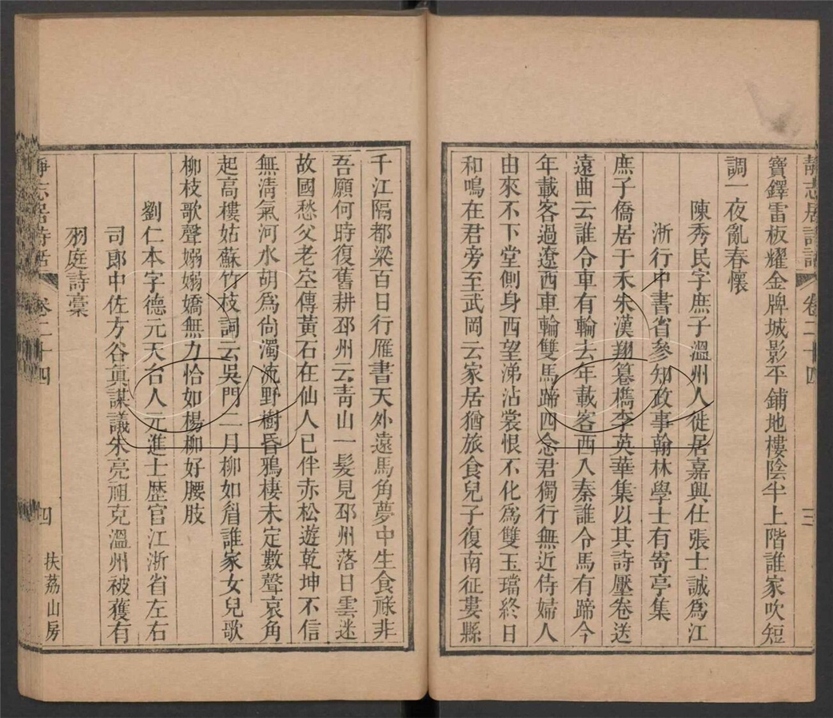 靜志居詩話 卷二十四 三
寶鐸雷板耀金牌城影平鋪地樓陰半上階誰家吹短
調一夜亂春懷
陳秀民字庶子溫州人徙居嘉興仕張士誠爲江
浙行中書省參知政事翰林學士有寄亭集
庶子僑居于禾朱漢翔篹檇李英華集以其詩壓卷送
遠曲云誰令車有輪去年載客西入秦誰令馬有蹄今
年載客過遼西車輪雙馬蹄四念君獨行無近侍婦人
由來不下堂側身西望涕沾裳恨不化爲雙玉璫終日
和鳴在君旁至武岡云家居猶旅食兒子復南征婁縣
千江隔都梁百日行雁書天外遠馬角夢中生食祿非
吾願何時復舊耕邳州云靑山一髮見邳州落日雲迷
故國愁父老空傳黃石在仙人已伴赤松遊乾坤不信
無淸氣河水胡爲尙濁流野樹昏鴉棲未定數聲哀角
起高樓姑蘇竹枝詞云吳門二月柳如睂誰家女兒歌
柳枝歌聲嫋嫋嬌無力恰如楊柳好腰肢
劉仁本字德元天台人元進士歷官江浙省左右
司郎中佐方谷眞謀議朱亮祖克溫州被獲有
羽庭詩稾
靜志居詩話 卷二十四 四 扶荔山房